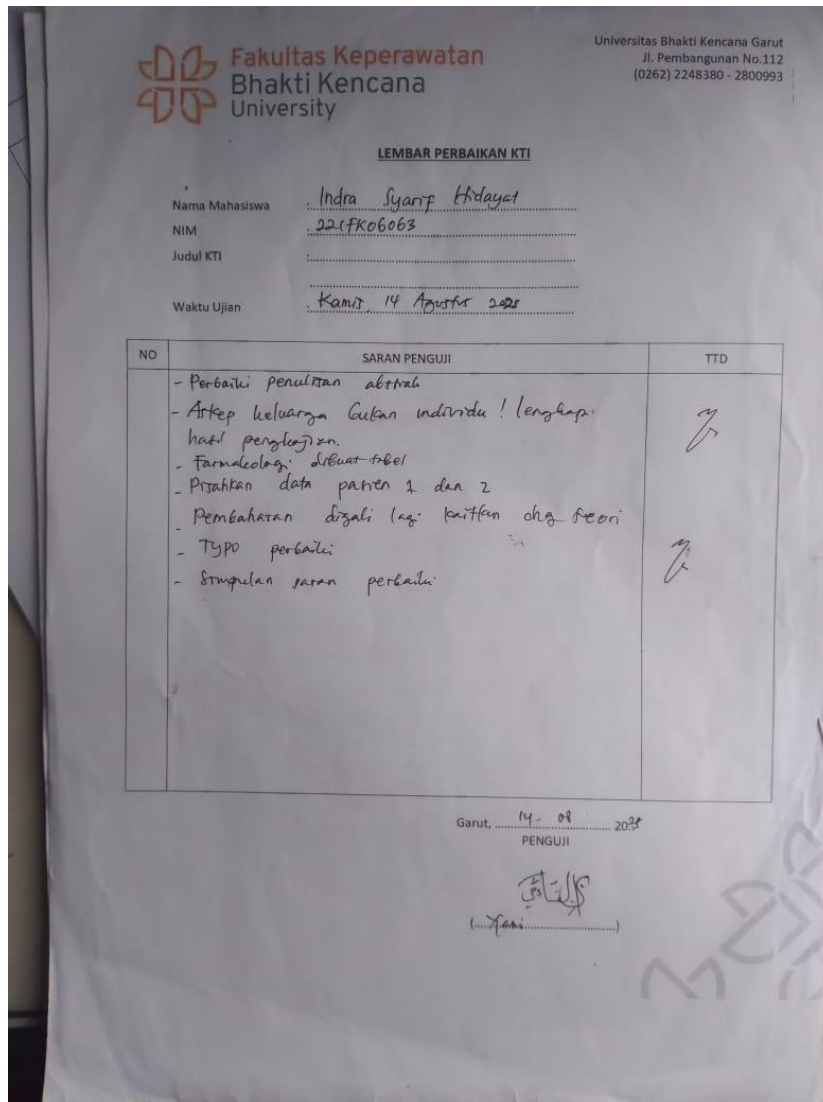 Fakultas Keperawatan
Bhakti Kencana
University
Universitas Bhakti Kencana Garut
Jl. Pembangunan No.112
(0262) 2248380 - 2800993
LEMBAR PERBAIKAN KTI
Nama Mahasiswa : Indra Syarif Hidayat
NIM : 221FK06063
Judul KTI :
Waktu Ujian : Kamis, 14 Agustus 2025
NO SARAN PENGUJI TTD
- Perbaiki penulisan abstrak
- Askep keluarga bukan individu ! lengkapi
hasil pengkajian.
- Farmakologi dibuat tabel
- Pisahkan data pasien 1 dan 2
- Pembahasan digali lagi kaitkan dng teori
- Typo perbaiki
- Simpulan saran perbaiki
Garut, 14 - 08 2025
PENGUJI